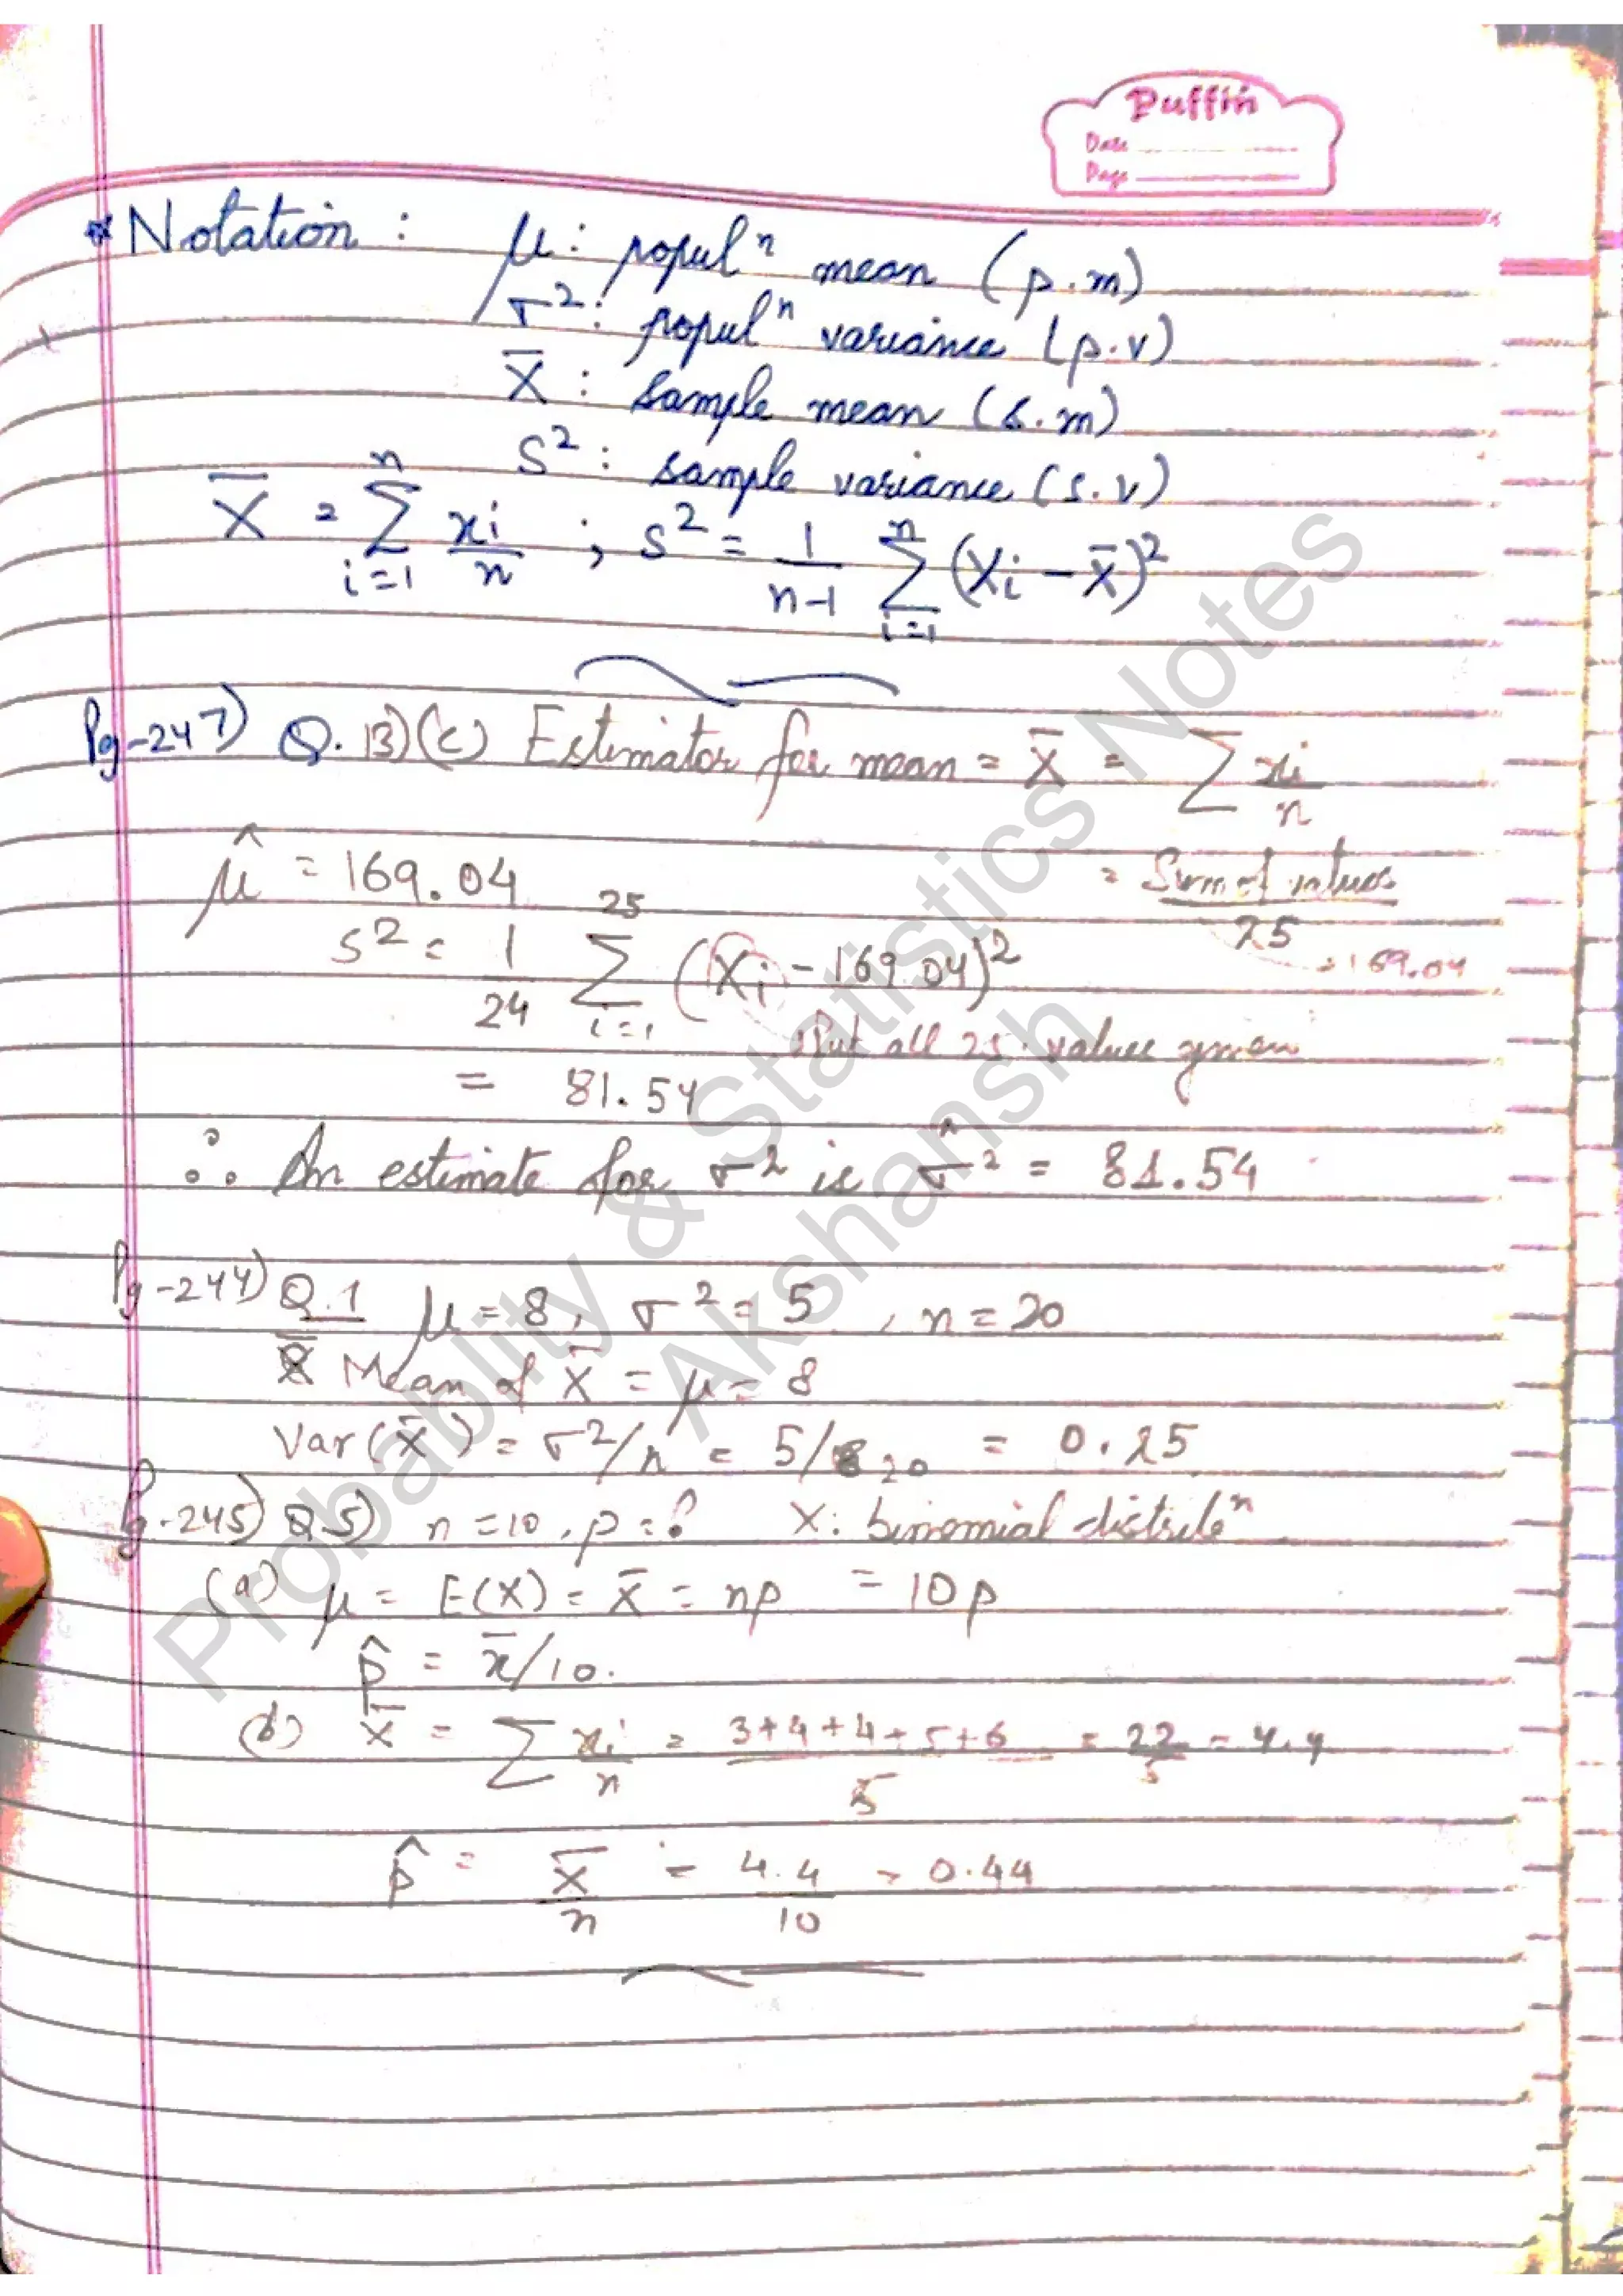 Puffin
Date
Page
* Notation : μ : populⁿ mean (p.m)
σ² : populⁿ variance (p.v)
X̄ : sample mean (s.m)
S² : sample variance (s.v)
X̄ = Σ_{i=1}^{n} xi/n ; s² = 1/(n-1) Σ_{i=1}^{n} (Xi - x̄)²
Pg-247) Q. 13)(c) Estimator for mean = X̄ = Σ xi/n
μ̂ = 169.04 = Sum of values/25 = 169.04
s² = 1/24 Σ_{i=1}^{25} (Xi - 169.04)²
Put all 25 values given
= 81.54
∴ An estimate for σ² is σ̂² = 81.54
Pg-244) Q.1 μ = 8, σ² = 5, n = 20
Mean of X̄ = μ = 8
Var(X̄) = σ²/n = 5/20 = 0.25
Pg-245) Q5) n = 10, p = ? X: binomial distribⁿ
(a) μ = E(X) = X̄ = np = 10p
p̂ = x̄/10.
(b) X̄ = Σ xi/n = 3+4+4+5+6/5 = 22/5 = 4.4
p̂ = X̄/n = 4.4/10 = 0.44
Probablity & Statistics Notes
Akshansh